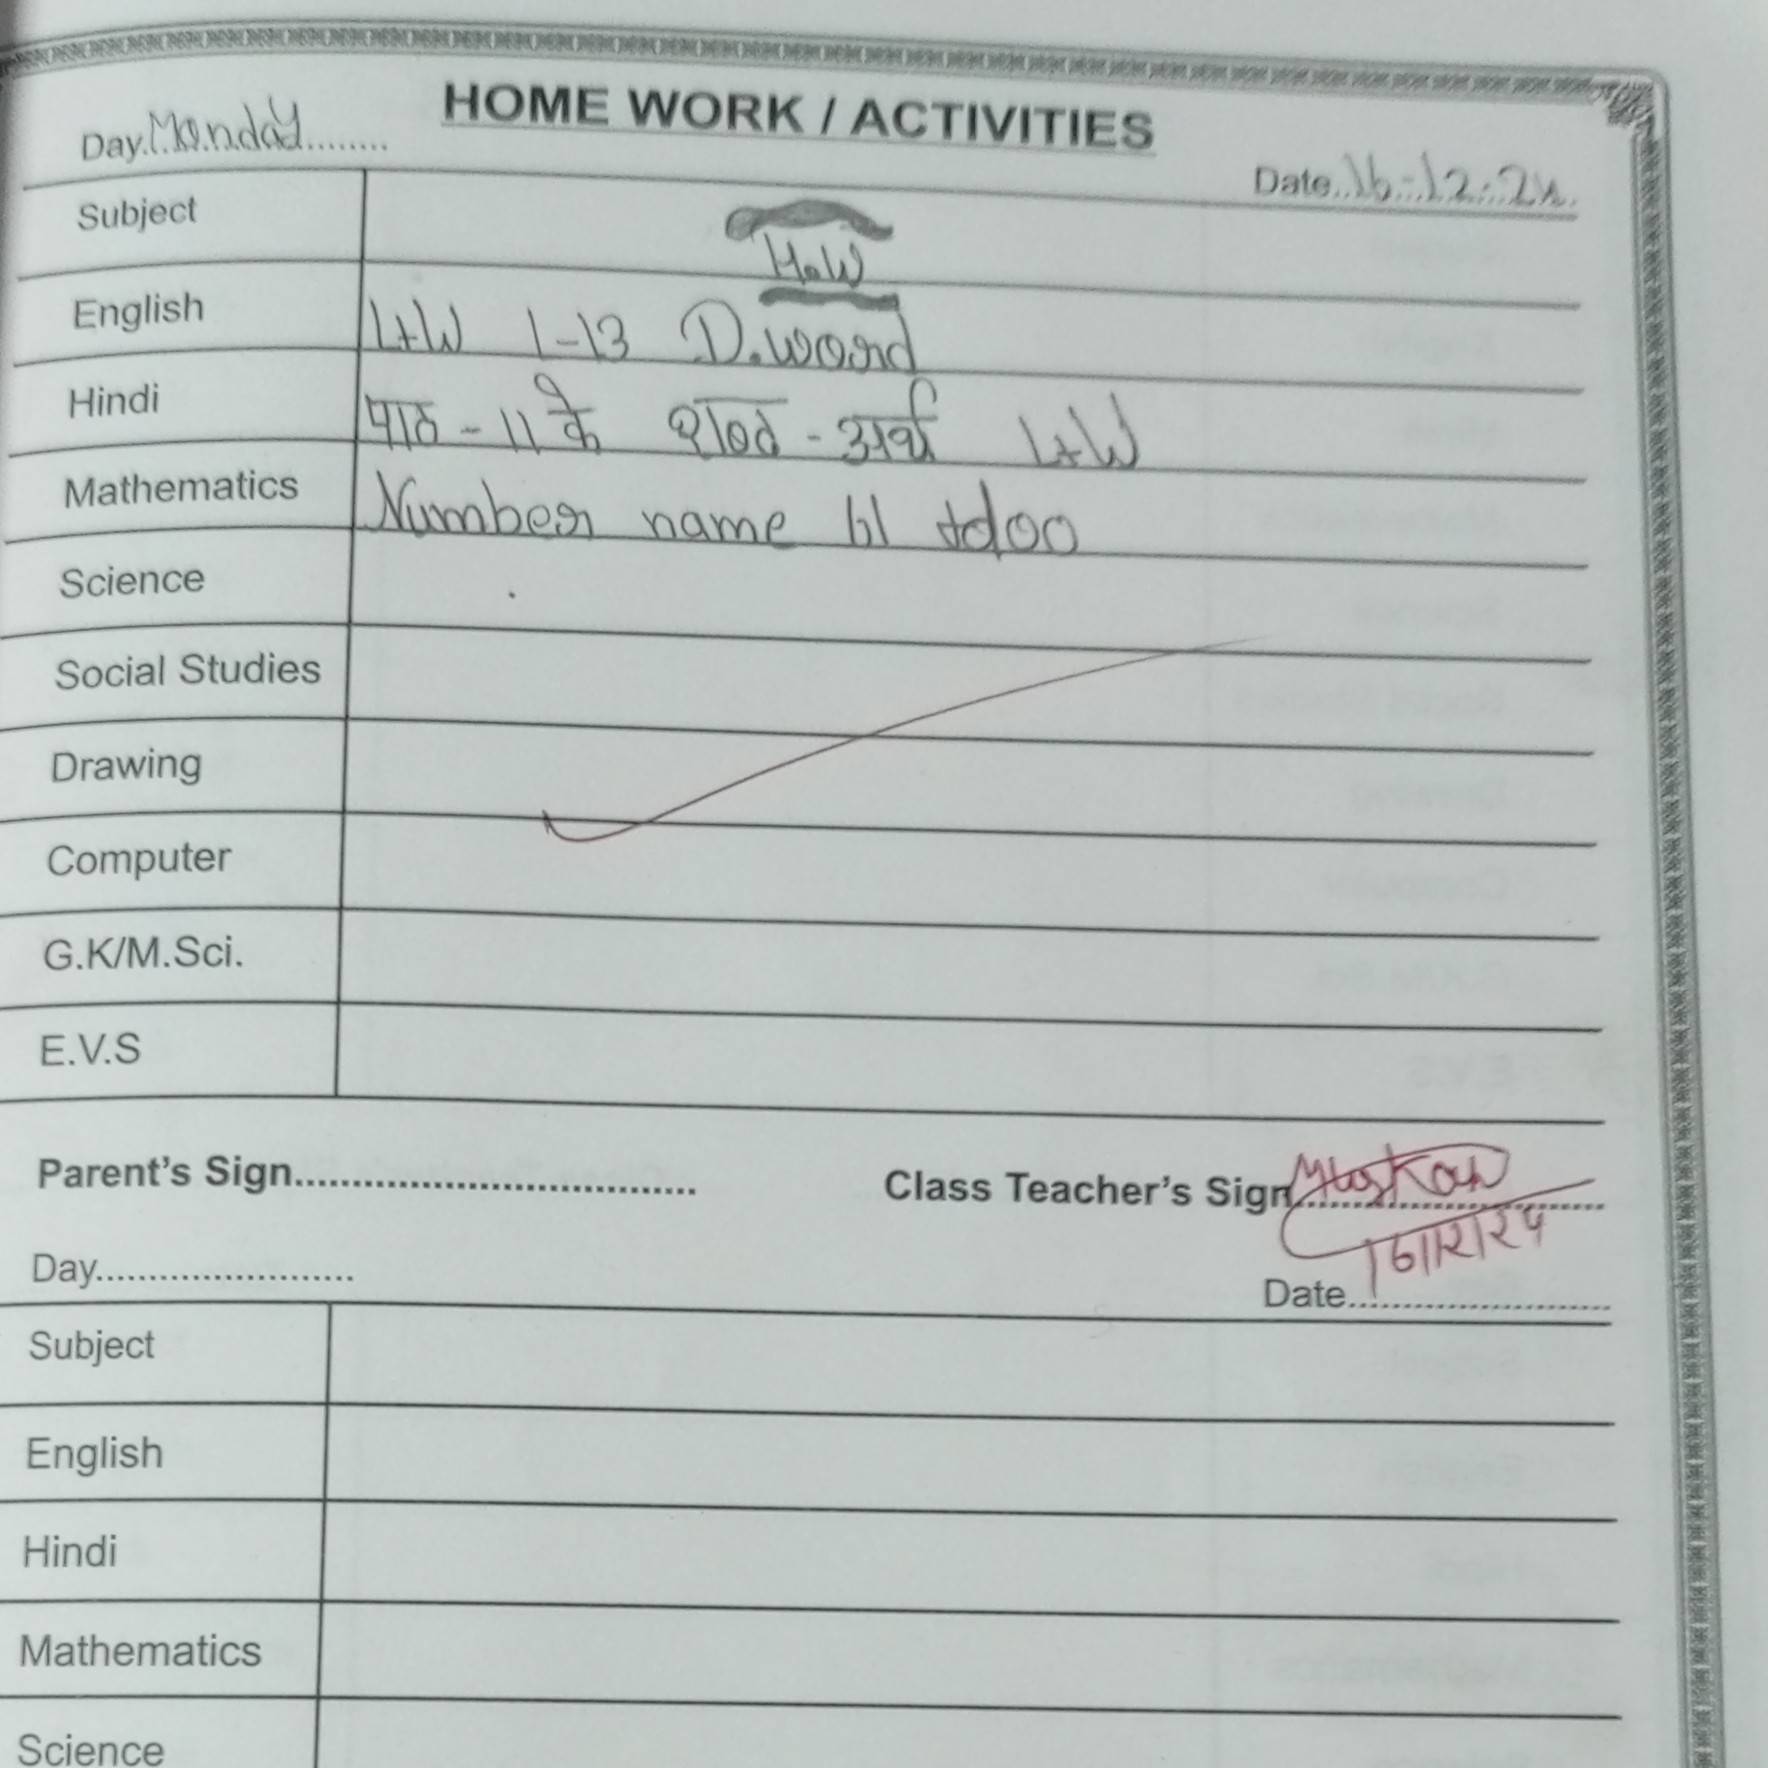 HOME WORK / ACTIVITIES
Day. Monday........
Date..16-12-24.
Subject
H.W
English L+W 1-13 D.word
Hindi पाठ - 11 के शब्द - अर्थ L+W
Mathematics Number name 61 to 100
Science
Social Studies
Drawing
Computer
G.K/M.Sci.
E.V.S
Parent's Sign.................................... Class Teacher's Sign Muskan
16/12/24
Day........................ Date........................
Subject
English
Hindi
Mathematics
Science